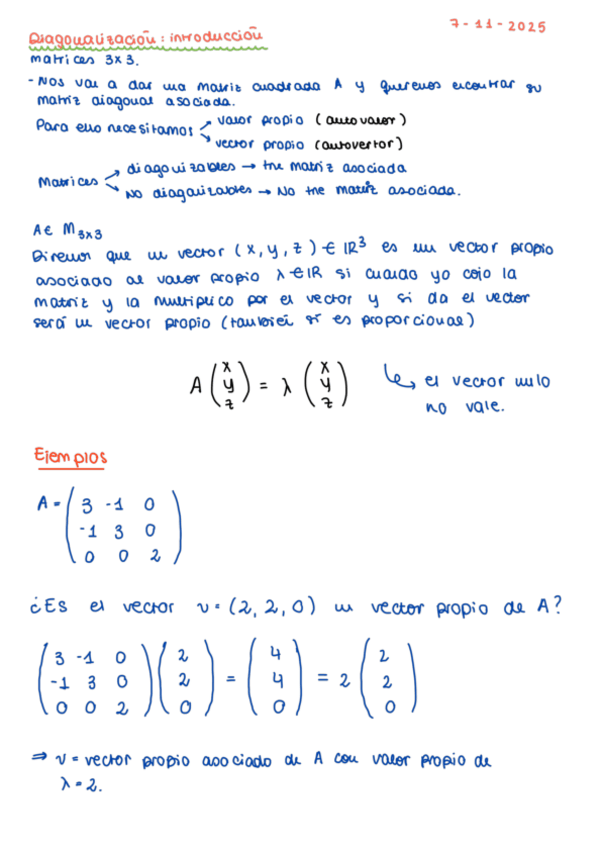 Diagonalización: introducción 7-11-2025
matrices 3x3.
- Nos va a dar una matriz cuadrada A y queremos encontrar su
matriz diagonal asociada.
Para ello necesitamos valor propio (autovalor)
vector propio (autovector)
Matrices diagonizables → tne matriz asociada
No diagonizables → No tne matriz asociada.
A ∈ M3x3
Diremos que un vector (x, y, z) ∈ IR³ es un vector propio
asociado al valor propio λ ∈ IR si cuando yo cojo la
matriz y la multiplico por el vector y si da el vector
será un vector propio (también si es proporcional)
A (x y z) = λ (x y z) ↳ el vector nulo
no vale.
Ejemplos
A = (3 -1 0
-1 3 0
0 0 2)
¿Es el vector v = (2, 2, 0) un vector propio de A?
(3 -1 0) (2) = (4) = 2 (2)
(-1 3 0) (2) (4) (2)
(0 0 2) (0) (0) (0)
⇒ v = vector propio asociado de A con valor propio de
λ = 2.